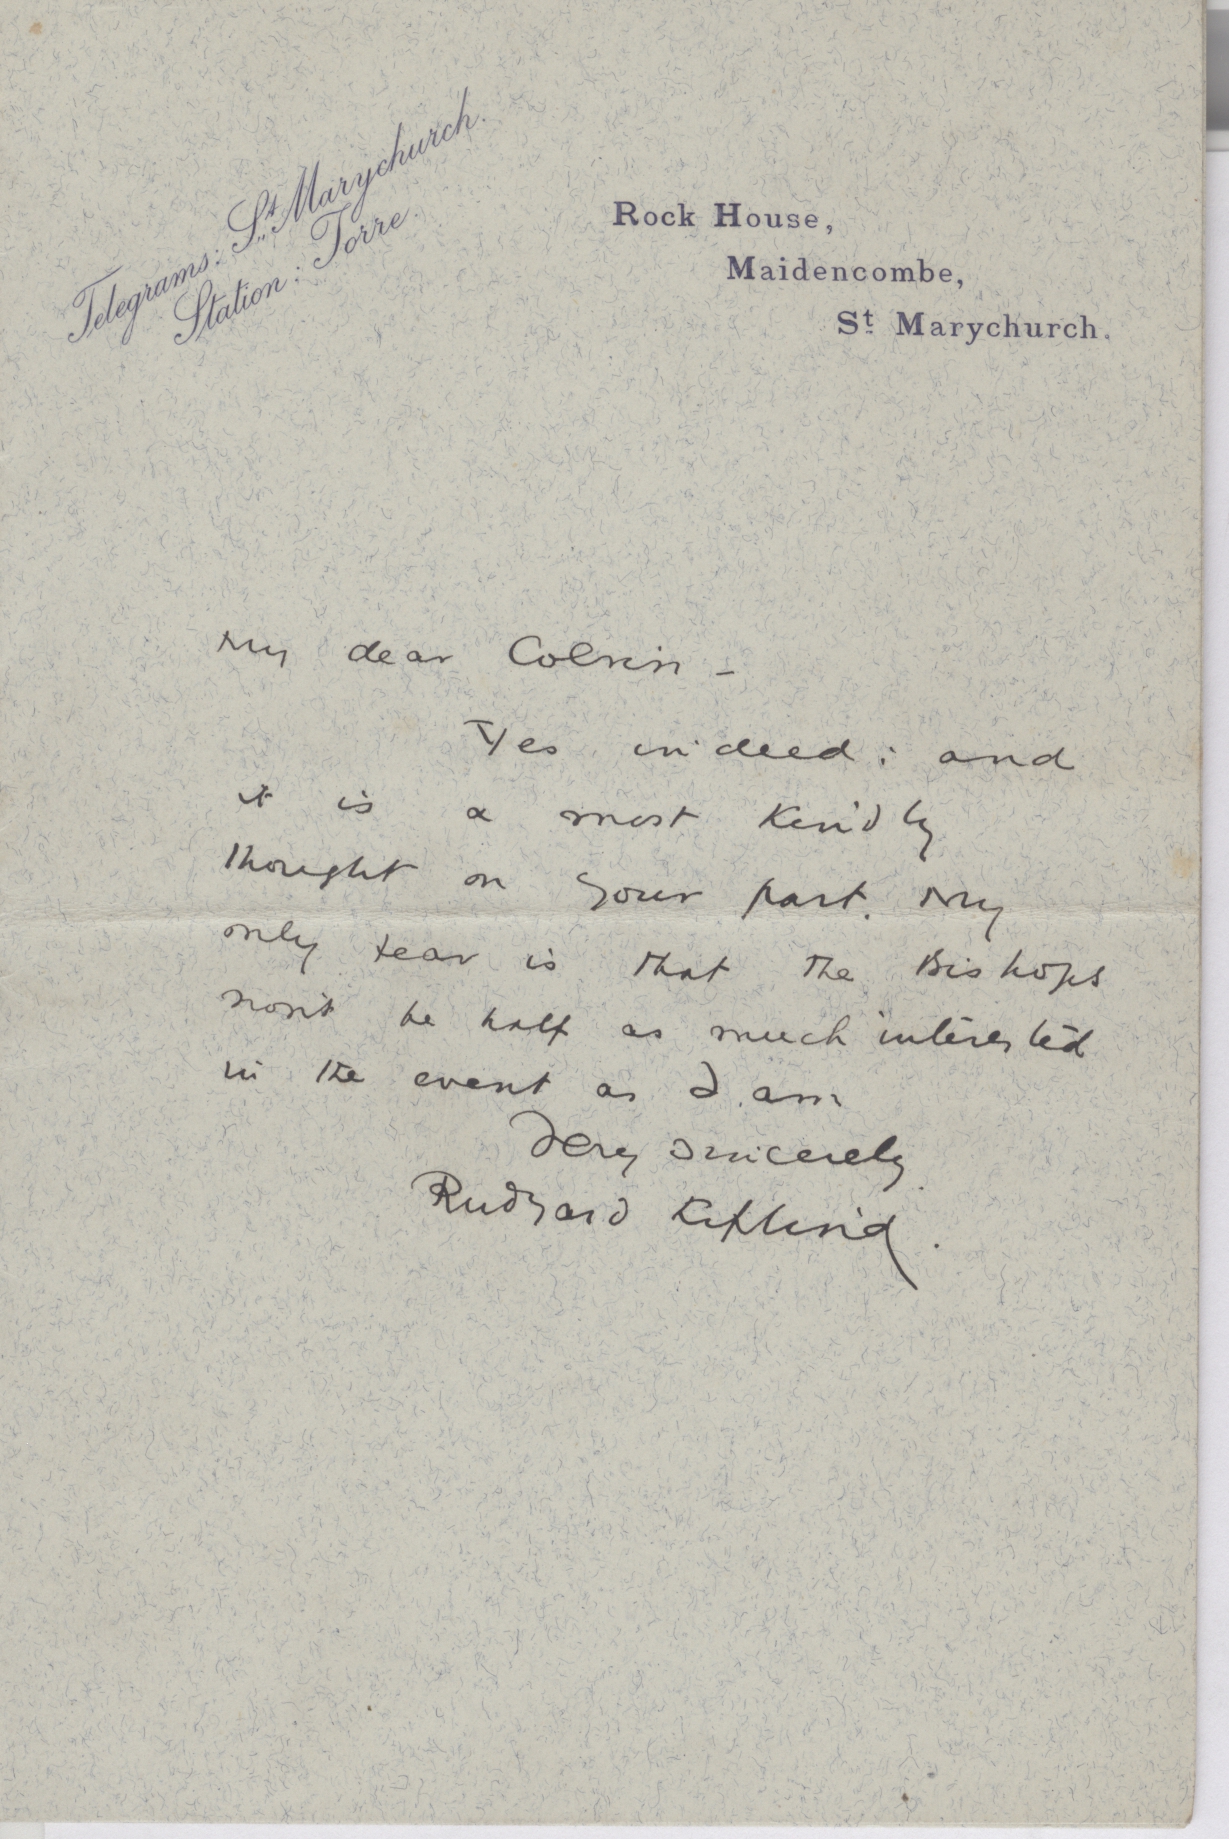 Telegrams: St. Marychurch.
Station: Torre.
Rock House,
Maidencombe,
St. Marychurch.
My dear Colvin -
Yes indeed: and
it is a most kindly
thought on your part. My
only fear is that the Bishops
won't be half as much interested
in the event as I am
Very sincerely
Rudyard Kipling.